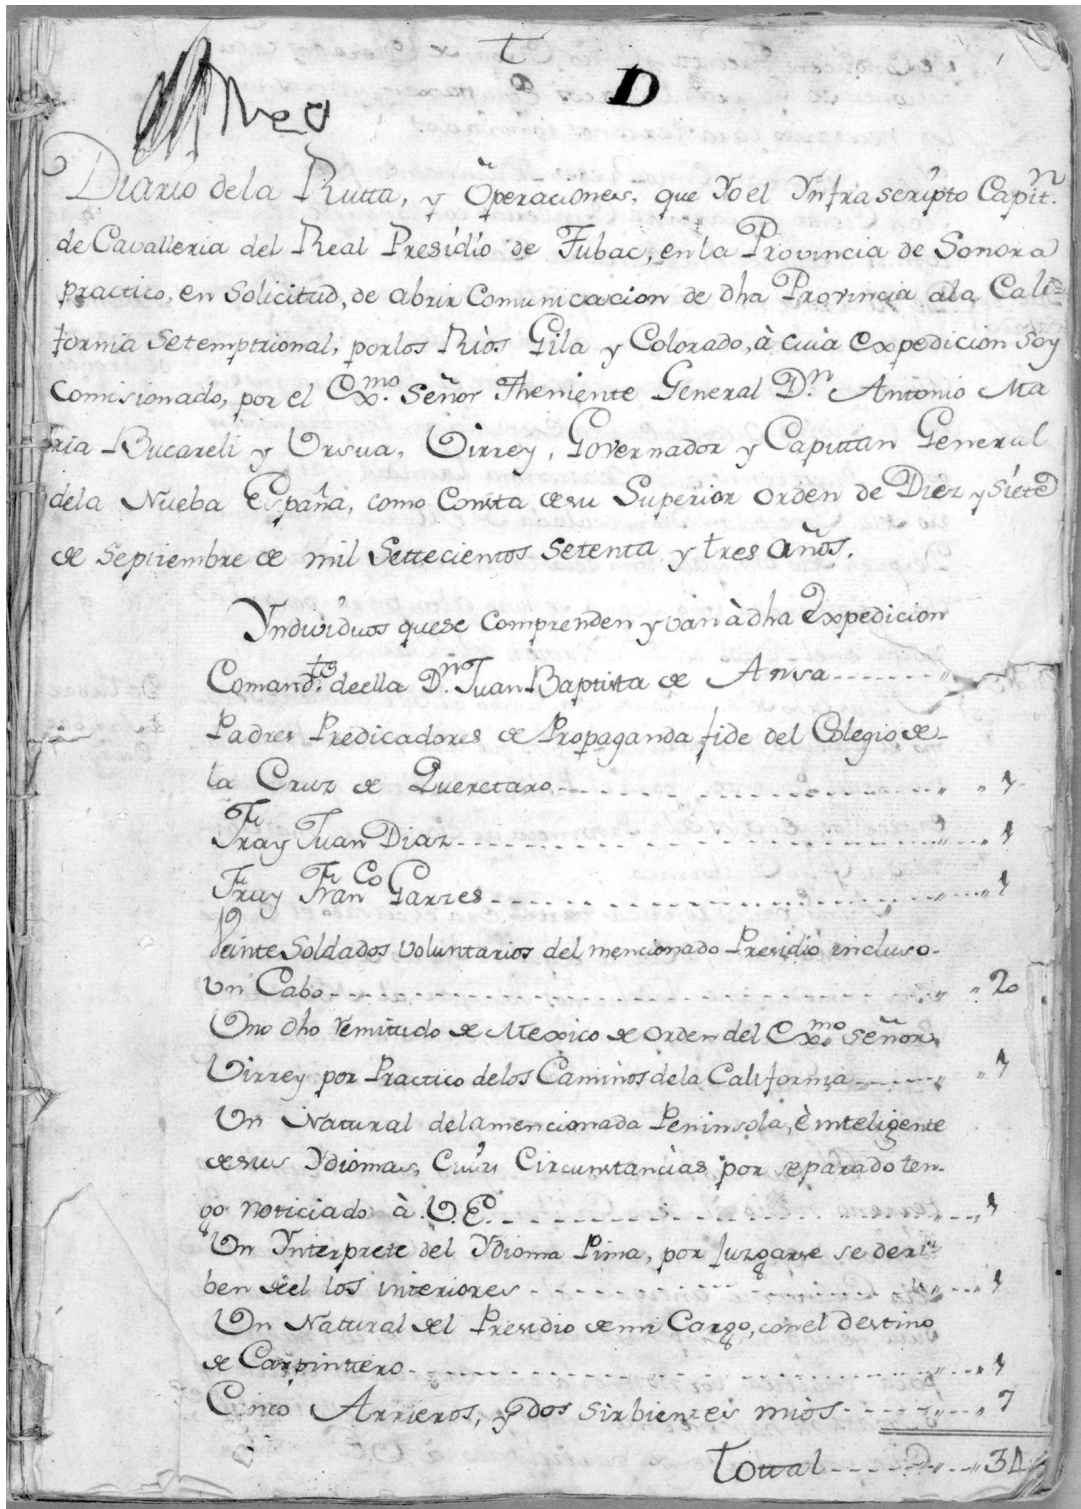 t
D
Diario dela Rutta, y Operaciones, que Yo el Ynfrascripto Capit.n
de Cavalleria del Real Presidio de Tubac, en la Provincia de Sonora
practico, en Solicitud, de abrir Comunicacion de dha Provincia ala Cali=
fornia Setemptrional, por los Riòs Gila y Colorado, à cuià expedicion soy
Comisionado, por el Ex.mo Señor Theniente General D.n Antonio Ma
ria Bucareli y Ursua, Virrey, Governador y Capitan General
dela Nueba España, como Consta de su Superior orden de Diez y siete
de Septiembre de mil Settecientos setenta y tres años.
Yndividuos que se Comprenden y vàn à dha Expedicion
Comand.te de ella D.n Juan Baptista de Ansa
Padres Predicadores de Propaganda fide del Colegio de
la Cruz de Queretaro 1
Fray Juan Diaz 1
Fray Fran.co Garzes 1
Veinte Soldados Voluntarios del mencionado Presidio incluso
un Cabo 20
Uno dho remitido de Mexico de orden del Ex.mo Señor
Virrey por Practico delos Caminos dela California 1
Un Natural dela mencionada Peninsola, è inteligente
de sus Ydiomas, Cuias Circunstancias por separado ten-
go noticiado à V.E. 1
Un Ynterprete del Ydioma Pima, por Juzgarse se deri
ben de el los interiores 1
Un Natural del Presidio de mi Cargo, con el destino
de Carpintero 1
Cinco Arrieros, y dos sirbientes mios 7
Tottal 34